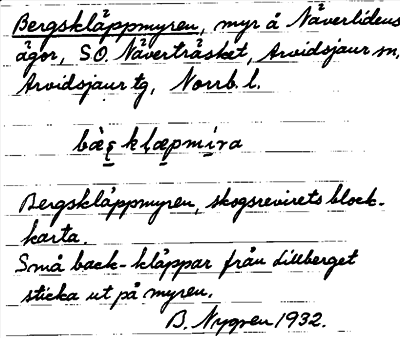 Bergskläppmyren, myr å Näverlidens
ägor, SO. Näverträsket, Arvidsjaur sn,
Arvidsjaur tg, Norrb. l.
bæ̀ȩ klæpmíra
Bergskläppmyren, skogsrevirets block-
karta.
Små back-kläppar från Lillberget
sticka ut på myren.
B. Nygren 1932.